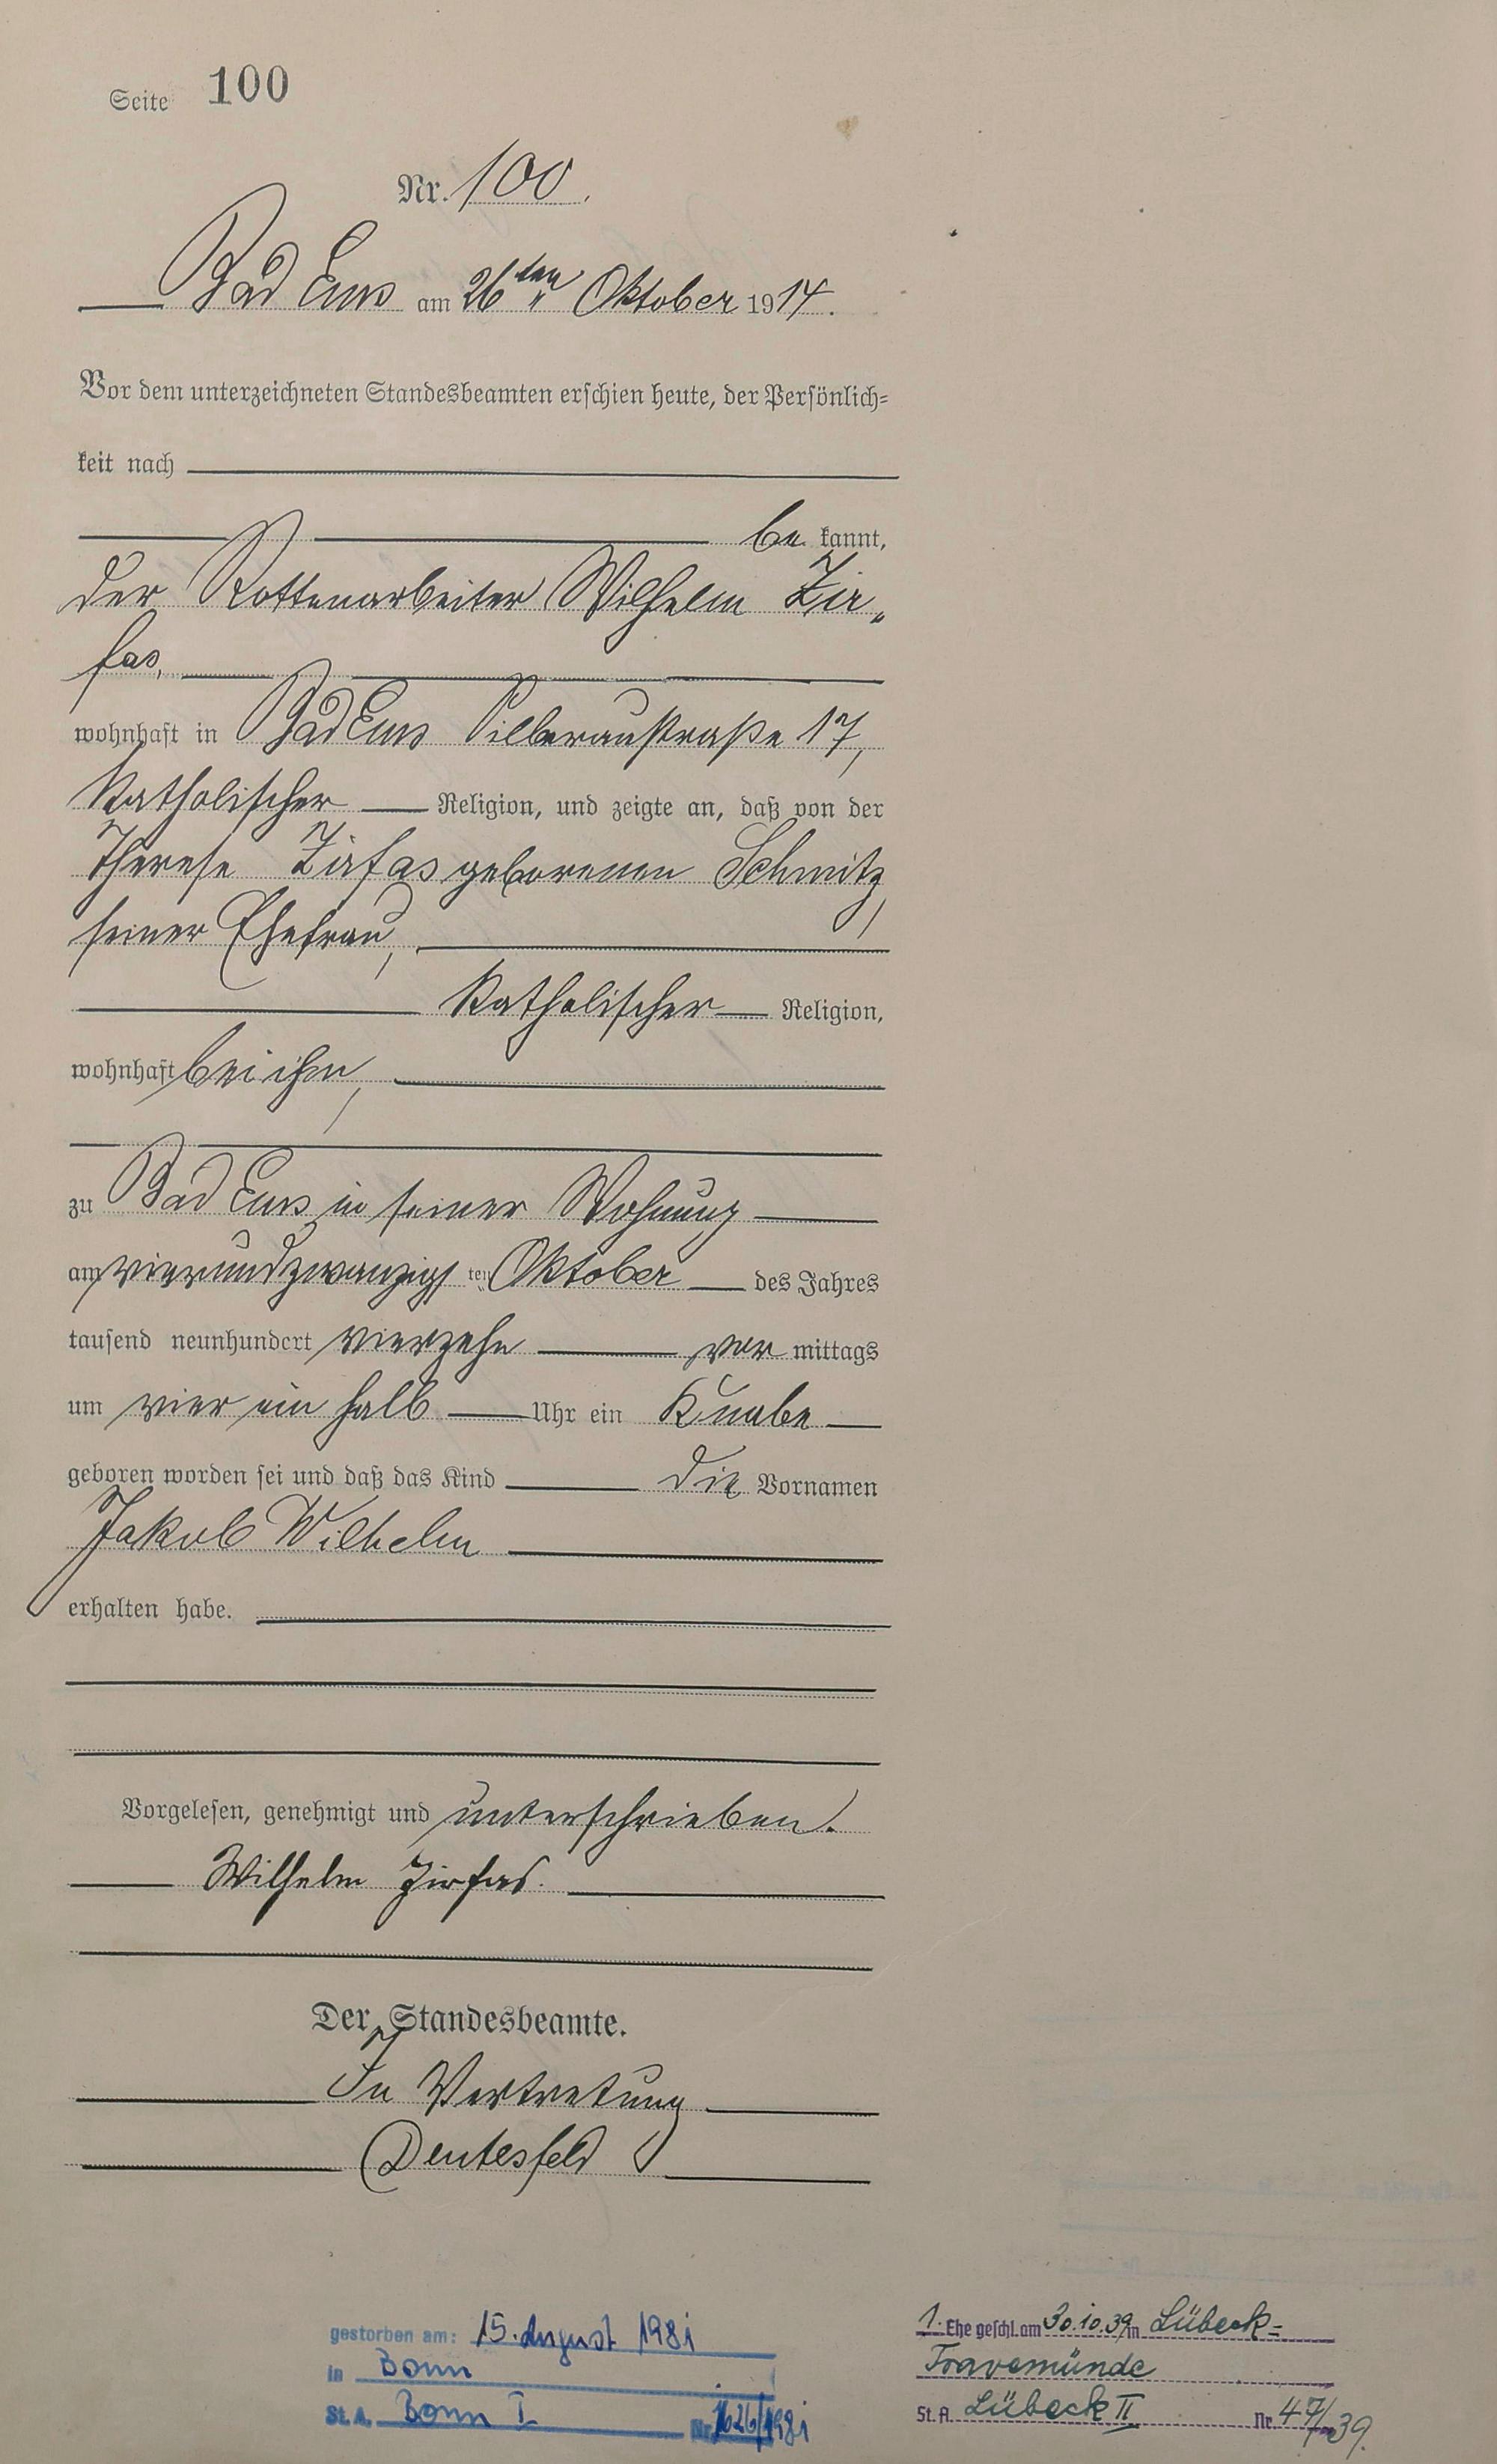 Seite 100
Nr. 100.
Bad Ems am 26ten Oktober 1914.
Vor dem unterzeichneten Standesbeamten erschien heute, der Persönlich=
keit nach
be kannt,
der Rottenarbeiter Wilhelm Zir„
fas,
wohnhaft in Bad Ems Silberaustraße 17,
katholischer Religion, und zeigte an, daß von der
Therese Zirfas geborenen Schmitz,
seiner Ehefrau,
katholischer Religion,
wohnhaft bei ihm,
zu Bad Ems in seiner Wohnung
am vierundzwanzigs ten Oktober des Jahres
tausend neunhundert vierzehn vor mittags
um vier ein halb Uhr ein Knabe
geboren worden sei und daß das Kind die Vornamen
Jakob Wilhelm
erhalten habe.
Vorgelesen, genehmigt und unterschrieben.
Wilhelm Zirfas.
Der Standesbeamte.
In Vertretung
gestorben am: 15. August 1981
in Bonn
St. A. Bonn I Nr. 1626/1981
1. Ehe geschl. am 30.10.39 in Lübeck=
Travemünde
St. A. Lübeck II Nr. 47/39.